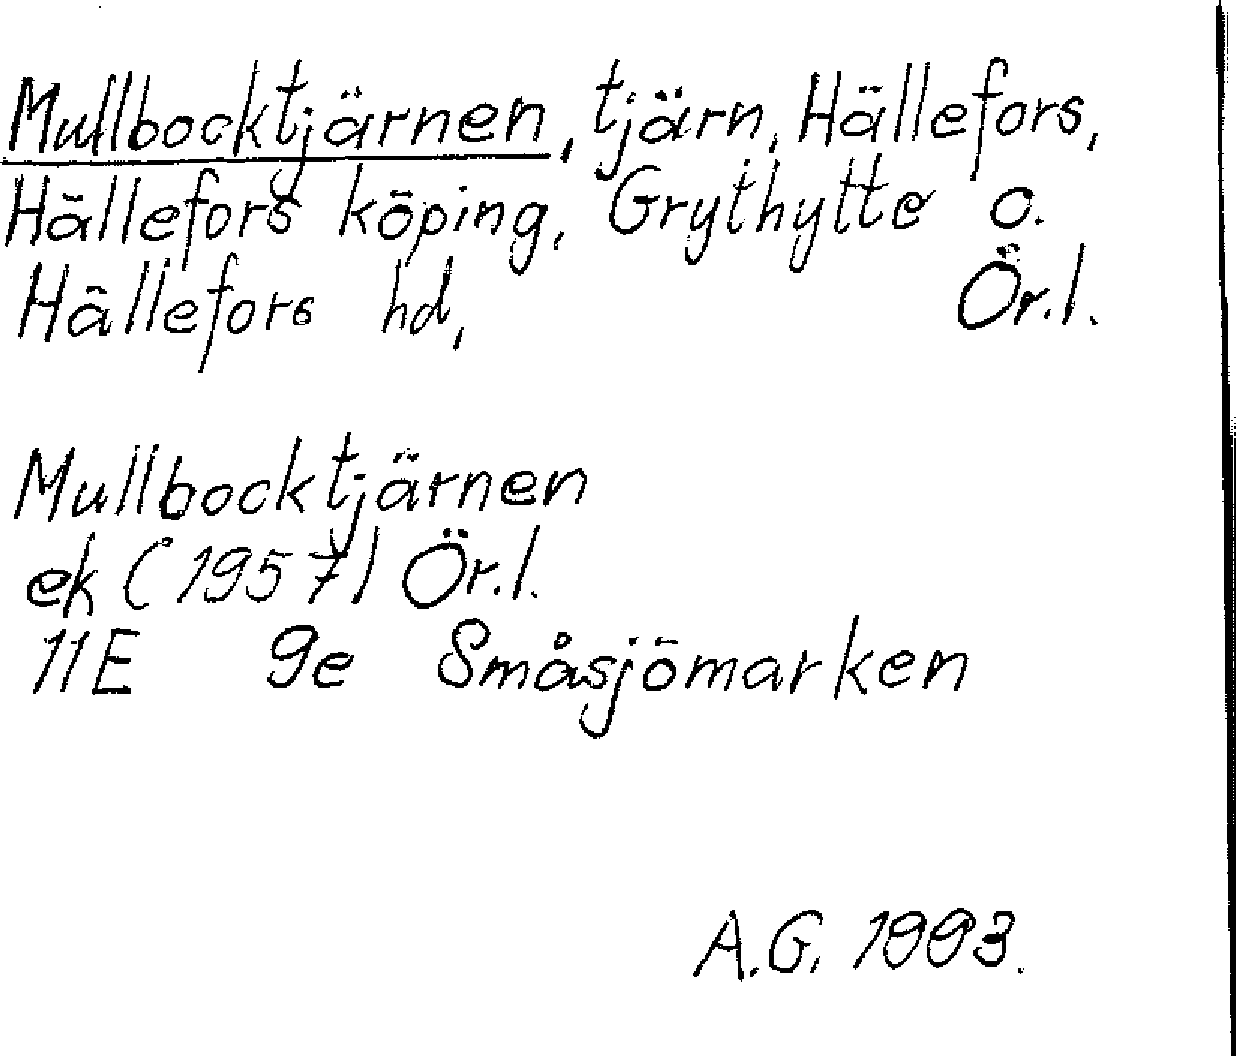 Mullbocktjärnen, tjärn, Hällefors,
Hällefors köping, Grythytte o.
Hällefors hd, Ör.l.
Mullbocktjärnen
ek (1957) Ör.l.
11E 9e Småsjömarken
A.G. 1993.